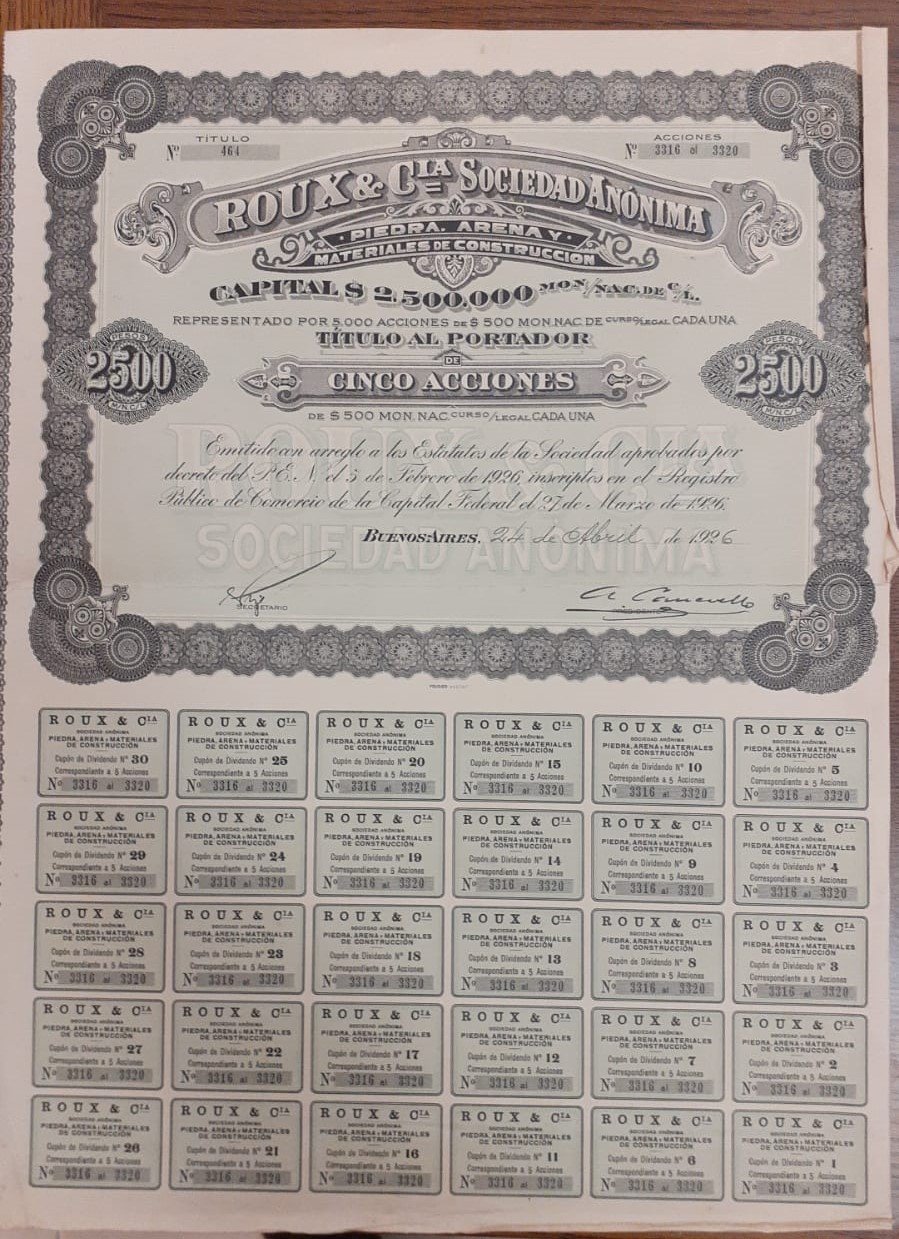 TÍTULO
Nº 464
ACCIONES
Nº 3316 al 3320
ROUX & CIA SOCIEDAD ANÓNIMA
PIEDRA, ARENA Y
MATERIALES DE CONSTRUCCIÓN
CAPITAL $ 2.500.000 MON/NAC. DE C/L.
REPRESENTADO POR 5.000 ACCIONES DE $ 500 MON. NAC. DE CURSO/LEGAL CADA UNA
TÍTULO AL PORTADOR
DE
CINCO ACCIONES
PESOS
2500
M/N. C/L.
PESOS
2500
M/N. C/L.
DE $ 500 MON. NAC. CURSO/LEGAL CADA UNA
ROUX & CIA
SOCIEDAD ANÓNIMA
Emitido con arreglo a los Estatutos de la Sociedad aprobados por
decreto del P. E. N. el 5 de Febrero de 1926, inscriptos en el Registro
Público de Comercio de la Capital Federal el 27 de Marzo de 1926.
BUENOS AIRES, 24 de Abril de 1926
SECRETARIO
PRESIDENTE
ROUX & CIA ROUX & CIA ROUX & CIA ROUX & CIA ROUX & CIA ROUX & CIA
SOCIEDAD ANÓNIMA SOCIEDAD ANÓNIMA SOCIEDAD ANÓNIMA SOCIEDAD ANÓNIMA SOCIEDAD ANÓNIMA SOCIEDAD ANÓNIMA
PIEDRA, ARENA Y MATERIALES PIEDRA, ARENA Y MATERIALES PIEDRA, ARENA Y MATERIALES PIEDRA, ARENA Y MATERIALES PIEDRA, ARENA Y MATERIALES PIEDRA, ARENA Y MATERIALES
DE CONSTRUCCIÓN DE CONSTRUCCIÓN DE CONSTRUCCIÓN DE CONSTRUCCIÓN DE CONSTRUCCIÓN DE CONSTRUCCIÓN
Cupón de Dividendo Nº 30 Cupón de Dividendo Nº 25 Cupón de Dividendo Nº 20 Cupón de Dividendo Nº 15 Cupón de Dividendo Nº 10 Cupón de Dividendo Nº 5
Correspondiente a 5 Acciones Correspondiente a 5 Acciones Correspondiente a 5 Acciones Correspondiente a 5 Acciones Correspondiente a 5 Acciones Correspondiente a 5 Acciones
Nº 3316 al 3320 Nº 3316 al 3320 Nº 3316 al 3320 Nº 3316 al 3320 Nº 3316 al 3320 Nº 3316 al 3320
ROUX & CIA ROUX & CIA ROUX & CIA ROUX & CIA ROUX & CIA ROUX & CIA
SOCIEDAD ANÓNIMA SOCIEDAD ANÓNIMA SOCIEDAD ANÓNIMA SOCIEDAD ANÓNIMA SOCIEDAD ANÓNIMA SOCIEDAD ANÓNIMA
PIEDRA, ARENA Y MATERIALES PIEDRA, ARENA Y MATERIALES PIEDRA, ARENA Y MATERIALES PIEDRA, ARENA Y MATERIALES PIEDRA, ARENA Y MATERIALES PIEDRA, ARENA Y MATERIALES
DE CONSTRUCCIÓN DE CONSTRUCCIÓN DE CONSTRUCCIÓN DE CONSTRUCCIÓN DE CONSTRUCCIÓN DE CONSTRUCCIÓN
Cupón de Dividendo Nº 29 Cupón de Dividendo Nº 24 Cupón de Dividendo Nº 19 Cupón de Dividendo Nº 14 Cupón de Dividendo Nº 9 Cupón de Dividendo Nº 4
Correspondiente a 5 Acciones Correspondiente a 5 Acciones Correspondiente a 5 Acciones Correspondiente a 5 Acciones Correspondiente a 5 Acciones Correspondiente a 5 Acciones
Nº 3316 al 3320 Nº 3316 al 3320 Nº 3316 al 3320 Nº 3316 al 3320 Nº 3316 al 3320 Nº 3316 al 3320
ROUX & CIA ROUX & CIA ROUX & CIA ROUX & CIA ROUX & CIA ROUX & CIA
SOCIEDAD ANÓNIMA SOCIEDAD ANÓNIMA SOCIEDAD ANÓNIMA SOCIEDAD ANÓNIMA SOCIEDAD ANÓNIMA SOCIEDAD ANÓNIMA
PIEDRA, ARENA Y MATERIALES PIEDRA, ARENA Y MATERIALES PIEDRA, ARENA Y MATERIALES PIEDRA, ARENA Y MATERIALES PIEDRA, ARENA Y MATERIALES PIEDRA, ARENA Y MATERIALES
DE CONSTRUCCIÓN DE CONSTRUCCIÓN DE CONSTRUCCIÓN DE CONSTRUCCIÓN DE CONSTRUCCIÓN DE CONSTRUCCIÓN
Cupón de Dividendo Nº 28 Cupón de Dividendo Nº 23 Cupón de Dividendo Nº 18 Cupón de Dividendo Nº 13 Cupón de Dividendo Nº 8 Cupón de Dividendo Nº 3
Correspondiente a 5 Acciones Correspondiente a 5 Acciones Correspondiente a 5 Acciones Correspondiente a 5 Acciones Correspondiente a 5 Acciones Correspondiente a 5 Acciones
Nº 3316 al 3320 Nº 3316 al 3320 Nº 3316 al 3320 Nº 3316 al 3320 Nº 3316 al 3320 Nº 3316 al 3320
ROUX & CIA ROUX & CIA ROUX & CIA ROUX & CIA ROUX & CIA ROUX & CIA
SOCIEDAD ANÓNIMA SOCIEDAD ANÓNIMA SOCIEDAD ANÓNIMA SOCIEDAD ANÓNIMA SOCIEDAD ANÓNIMA SOCIEDAD ANÓNIMA
PIEDRA, ARENA Y MATERIALES PIEDRA, ARENA Y MATERIALES PIEDRA, ARENA Y MATERIALES PIEDRA, ARENA Y MATERIALES PIEDRA, ARENA Y MATERIALES PIEDRA, ARENA Y MATERIALES
DE CONSTRUCCIÓN DE CONSTRUCCIÓN DE CONSTRUCCIÓN DE CONSTRUCCIÓN DE CONSTRUCCIÓN DE CONSTRUCCIÓN
Cupón de Dividendo Nº 27 Cupón de Dividendo Nº 22 Cupón de Dividendo Nº 17 Cupón de Dividendo Nº 12 Cupón de Dividendo Nº 7 Cupón de Dividendo Nº 2
Correspondiente a 5 Acciones Correspondiente a 5 Acciones Correspondiente a 5 Acciones Correspondiente a 5 Acciones Correspondiente a 5 Acciones Correspondiente a 5 Acciones
Nº 3316 al 3320 Nº 3316 al 3320 Nº 3316 al 3320 Nº 3316 al 3320 Nº 3316 al 3320 Nº 3316 al 3320
ROUX & CIA ROUX & CIA ROUX & CIA ROUX & CIA ROUX & CIA ROUX & CIA
SOCIEDAD ANÓNIMA SOCIEDAD ANÓNIMA SOCIEDAD ANÓNIMA SOCIEDAD ANÓNIMA SOCIEDAD ANÓNIMA SOCIEDAD ANÓNIMA
PIEDRA, ARENA Y MATERIALES PIEDRA, ARENA Y MATERIALES PIEDRA, ARENA Y MATERIALES PIEDRA, ARENA Y MATERIALES PIEDRA, ARENA Y MATERIALES PIEDRA, ARENA Y MATERIALES
DE CONSTRUCCIÓN DE CONSTRUCCIÓN DE CONSTRUCCIÓN DE CONSTRUCCIÓN DE CONSTRUCCIÓN DE CONSTRUCCIÓN
Cupón de Dividendo Nº 26 Cupón de Dividendo Nº 21 Cupón de Dividendo Nº 16 Cupón de Dividendo Nº 11 Cupón de Dividendo Nº 6 Cupón de Dividendo Nº 1
Correspondiente a 5 Acciones Correspondiente a 5 Acciones Correspondiente a 5 Acciones Correspondiente a 5 Acciones Correspondiente a 5 Acciones Correspondiente a 5 Acciones
Nº 3316 al 3320 Nº 3316 al 3320 Nº 3316 al 3320 Nº 3316 al 3320 Nº 3316 al 3320 Nº 3316 al 3320